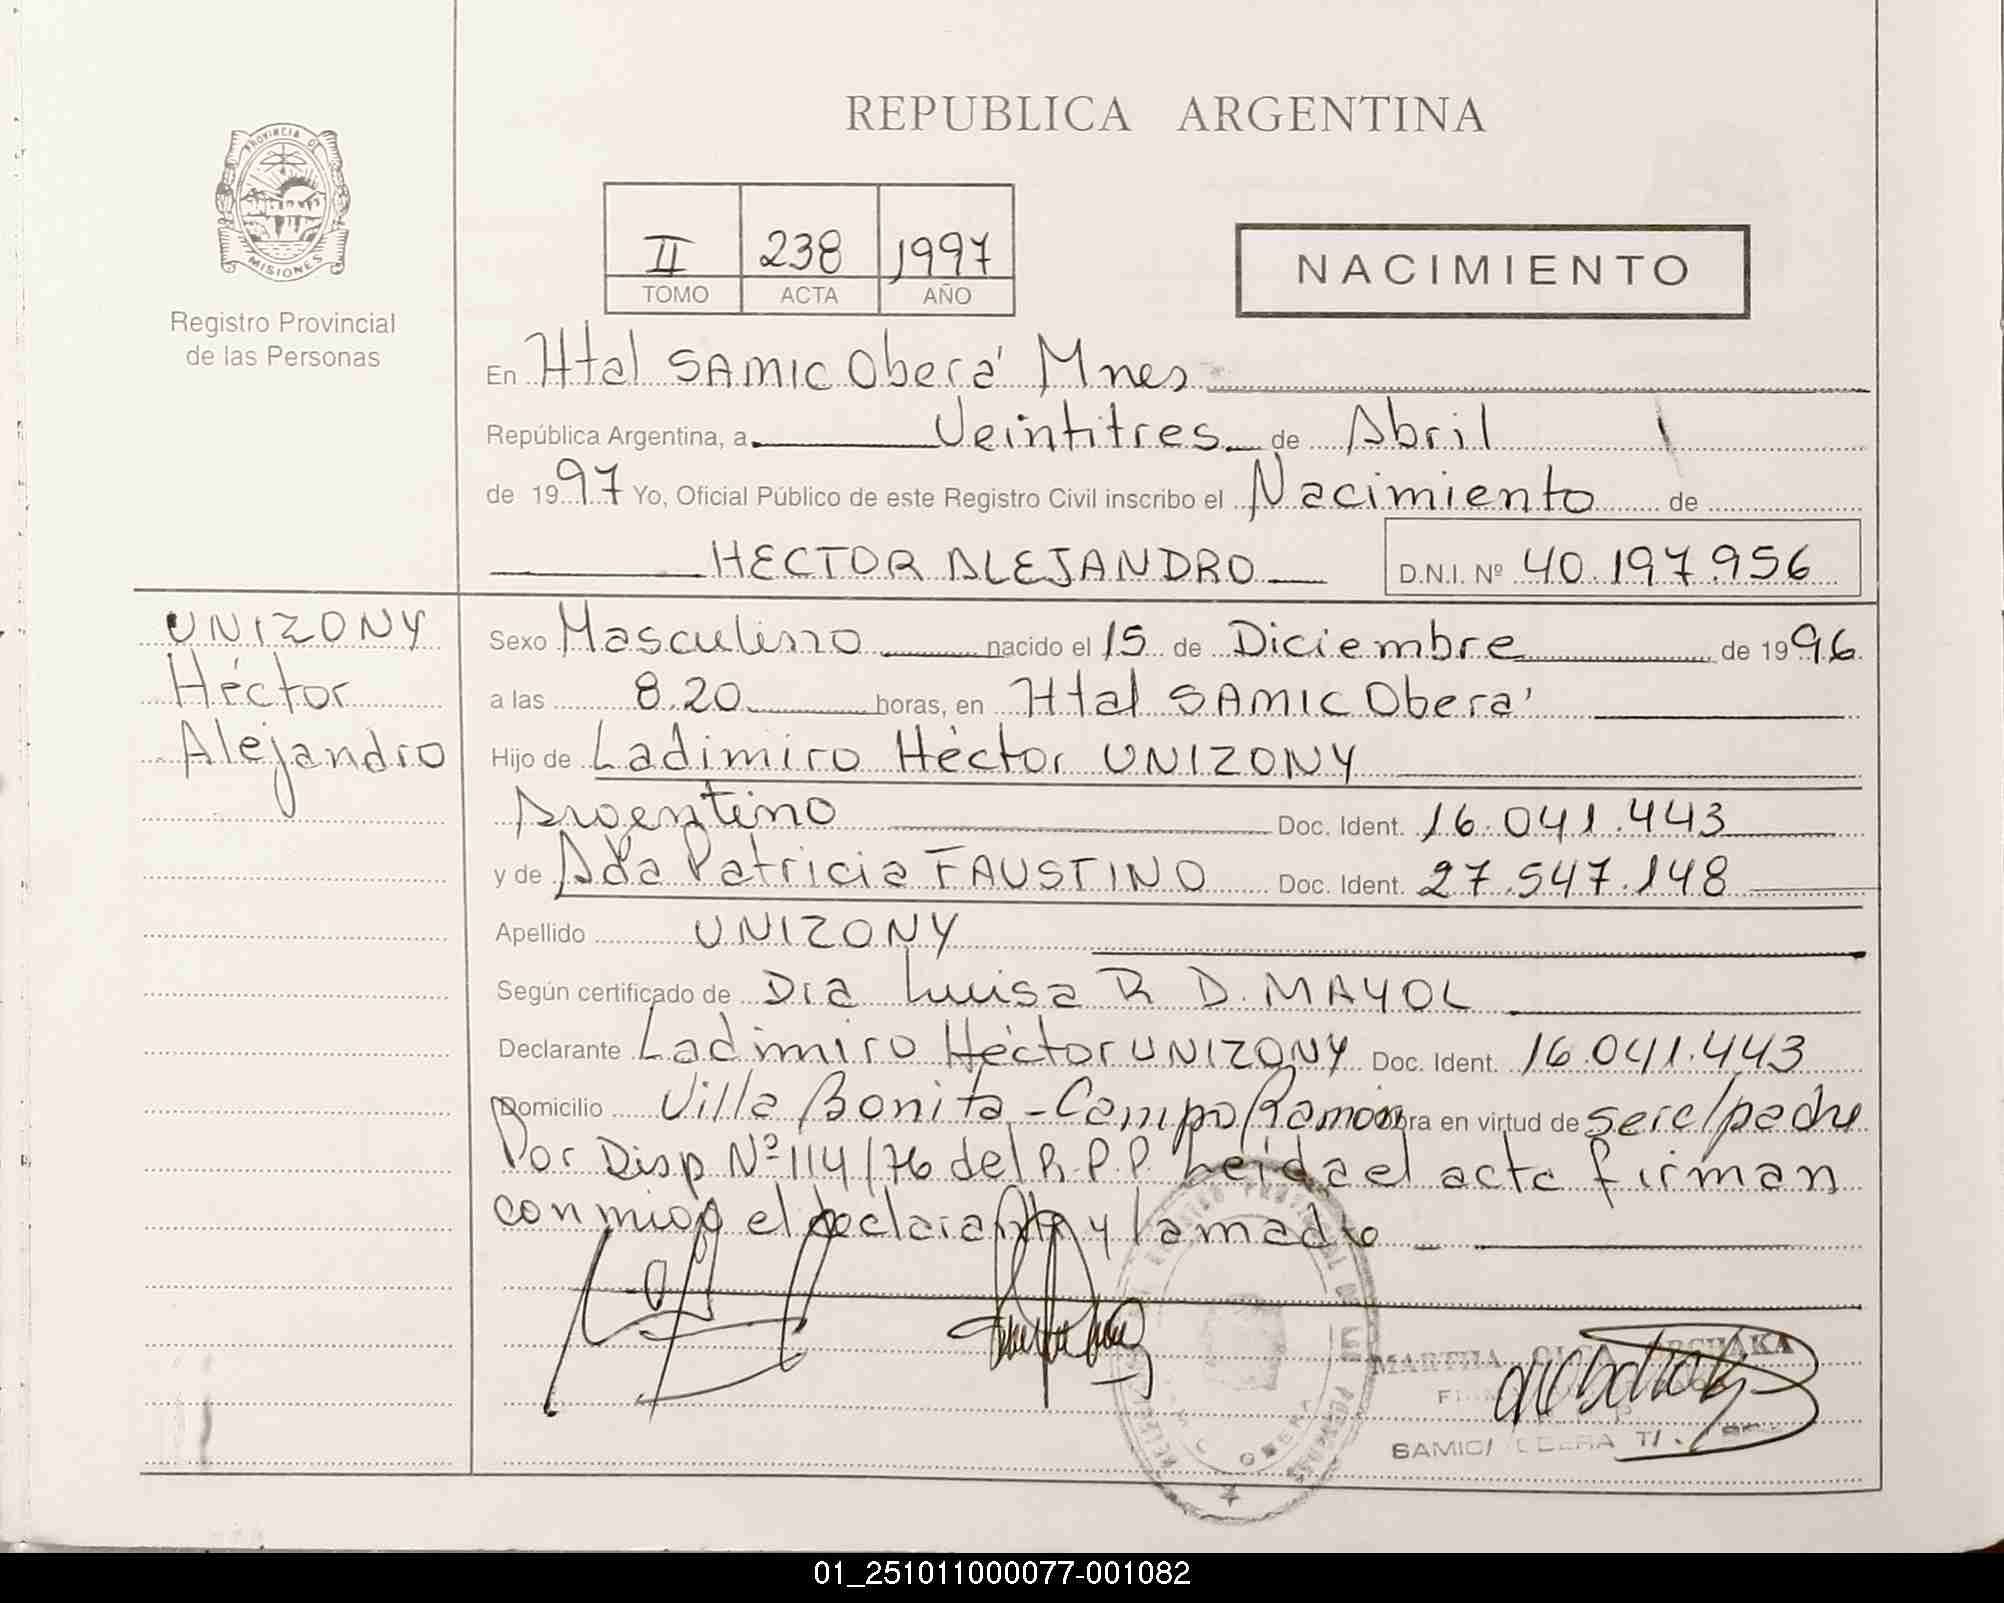 REPUBLICA ARGENTINA
PROVINCIA DE
MISIONES
Registro Provincial
de las Personas
II 238 1997
TOMO ACTA AÑO
NACIMIENTO
En Htal SAMIC Oberá Mnes
República Argentina, a Veintitres de Abril
de 1997 Yo, Oficial Público de este Registro Civil inscribo el Nacimiento de
HECTOR ALEJANDRO D.N.I. Nº 40.197.956
UNIZONY
Héctor
Alejandro
Sexo Masculino nacido el 15 de Diciembre de 1996
a las 8.20 horas, en Htal SAMIC Oberá
Hijo de Ladimiro Héctor UNIZONY
Argentino Doc. Ident. 16.041.443
y de Ada Patricia FAUSTINO Doc. Ident. 27.547.148
Apellido UNIZONY
Según certificado de Dra Luisa R D. MAYOL
Declarante Ladimiro Héctor UNIZONY Doc. Ident. 16.041.443
Domicilio Villa Bonita - Campo Ramón obra en virtud de ser el padre
Por Disp Nº 114/76 del R.P.P. Leida el acta firman
conmigo el declarante y la madre
MARTHA OLGA
SAMIC OBERA
01_251011000077-001082